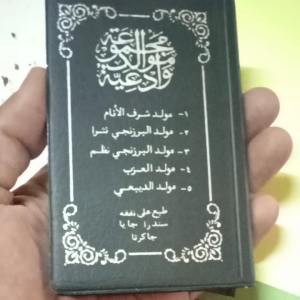 مجموعة
موالد
وأدعية
١- مولد شرف الأنام
٢- مولد البرزنجي نثرا
٣- مولد البرزنجي نظم
٤- مولد العزب
٥- مولد الديبعي
طبع على نفقة
سندرا جايا
جاكرتا